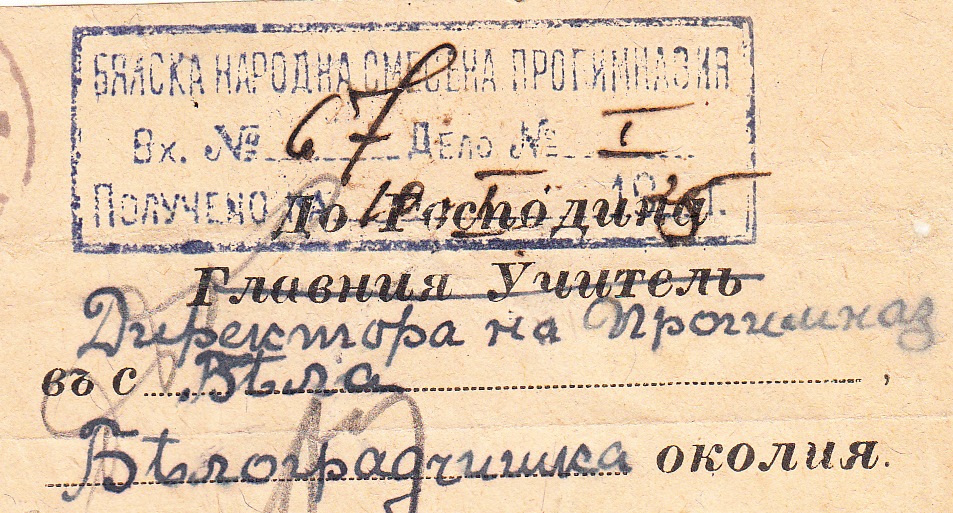 БЯЛСКА НАРОДНА СМЕСЕНА ПРОГИМНАЗИЯ
Вх. № 67 Дело № I
Получено на
До Господина
Главния Учитель
Директора на Прогимназ
въ с. Бѣла,
Бѣлоградчишка околия.